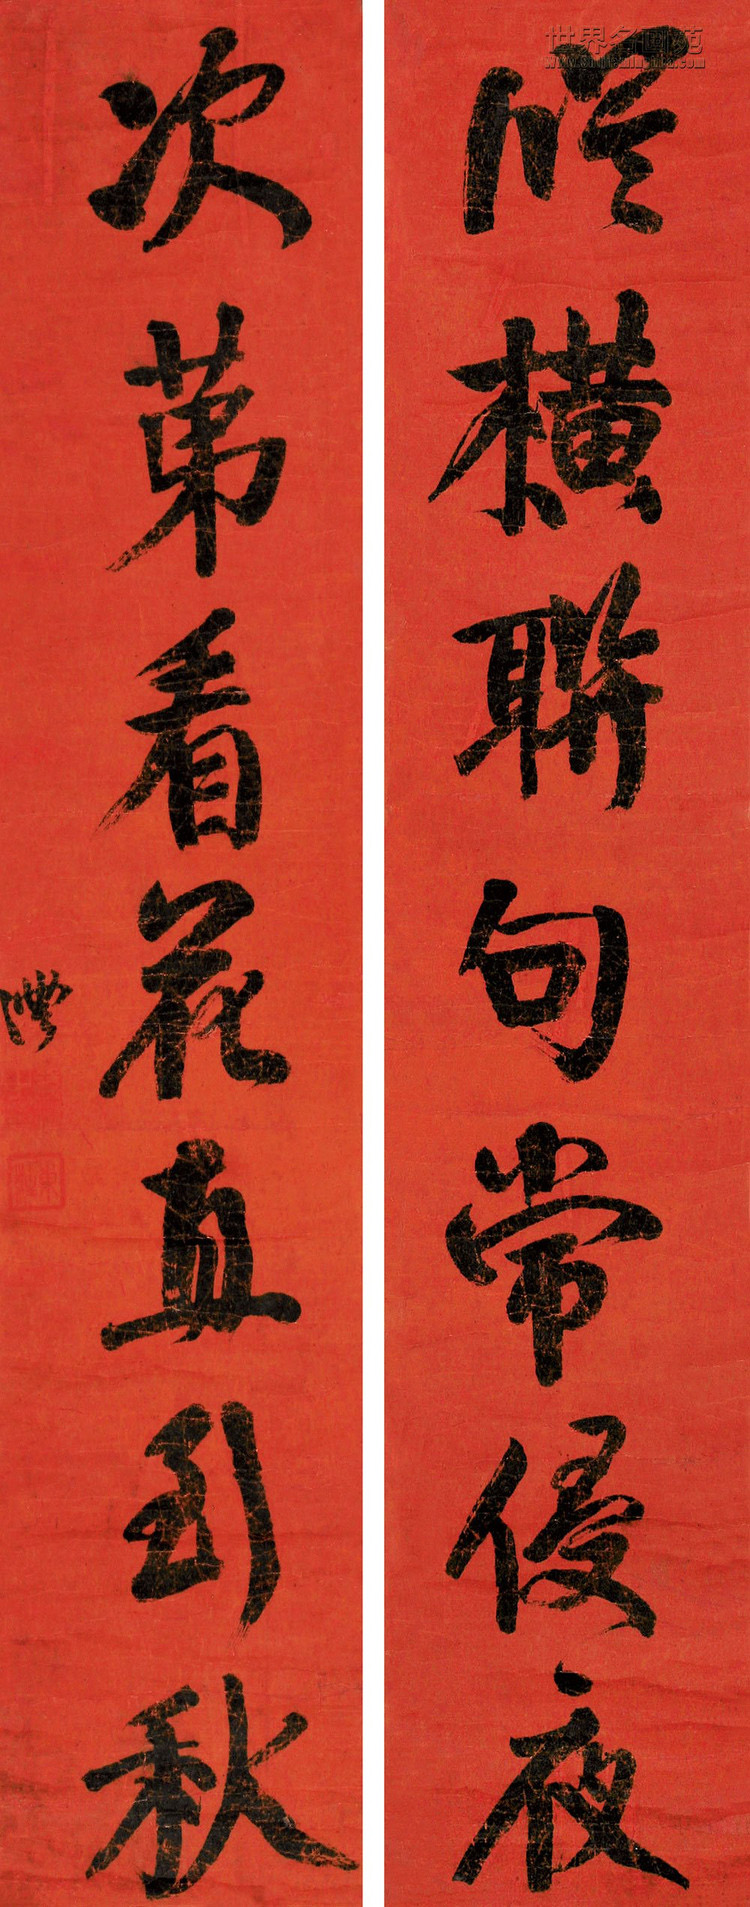 纵横联句常侵夜
次第看花直到秋
澧
世界名画苑